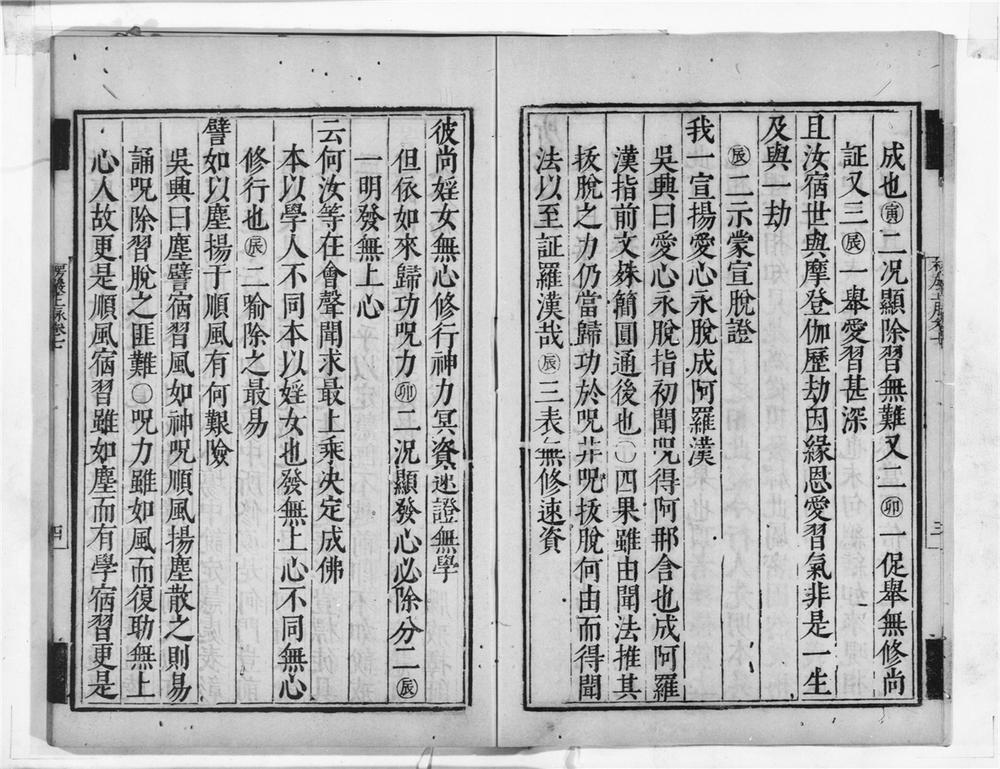 成也㊀寅二況顯除習無難又二㊀卯一促舉無修尚
証又三㊀辰一舉愛習甚深
且汝宿世與摩登伽歷劫因緣恩愛習氣非是一生
及與一劫
㊀辰二示蒙宣脫證
我一宣揚愛心永脫成阿羅漢
吳興曰愛心永脫指初聞咒得阿那含也成阿羅
漢指前文殊簡圓通後也〇四果雖由聞法推其
拔脫之力仍當歸功於呪非呪拔脫何由而得聞
法以至証羅漢哉㊀辰三表無修速資
彼尚婬女無心修行神力冥資速證無學
但依如來歸功呪力㊀卯二況顯發心必除分二㊀辰
一明發無上心
云何汝等在會聲聞求最上乘決定成佛
本以學人不同本以婬女也發無上心不同無心
修行也㊀辰二喻除之最易
譬如以塵揚于順風有何艱險
吳興曰塵譬宿習風如神呪順風揚塵散之則易
誦呪除習脫之匪難〇呪力雖如風而復助無上
心人故更是順風宿習雖如塵而有學宿習更是
三
四